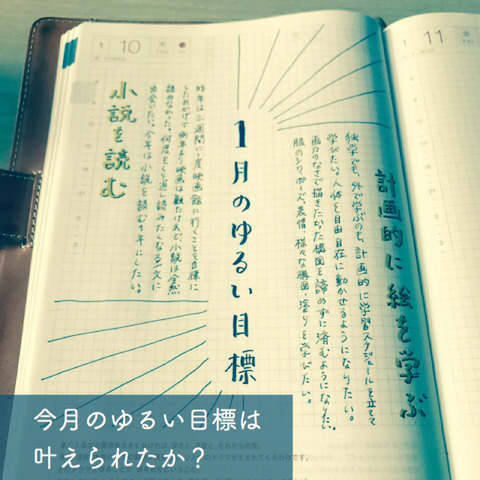 1 10
1 11
計画的に絵を学ぶ
独学でも、外で学ぶのも、計画的に学習スケジュールを立てて
学びたい。人体を自由自在に動かせるようになりたい。
画力のなさで描きたかった構図を諦めずに済むようになりたい。
服のシワ、ポーズ、表情、様々な構図、塗りを学びたい。
1月のゆるい目標
小説を読む
昨年は2週間に1度映画館に行くことを目標に
したおかげで例年より映画は観たけど、小説は全然
読めなかった。何度もくり返し読みたくなる文に
出会いたい。今年は小説を読む1年にしたい。
今月のゆるい目標は
叶えられたか？
のドラマが生まれてくるわけです。